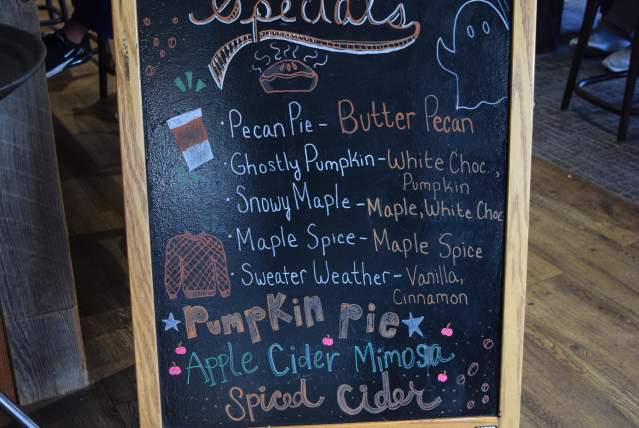 Specials
· Pecan Pie - Butter Pecan
· Ghostly Pumpkin - White Choc.,
Pumpkin
· Snowy Maple - Maple, White Choc
· Maple Spice - Maple Spice
· Sweater Weather - Vanilla,
Cinnamon
Pumpkin pie
Apple Cider Mimosa
Spiced Cider